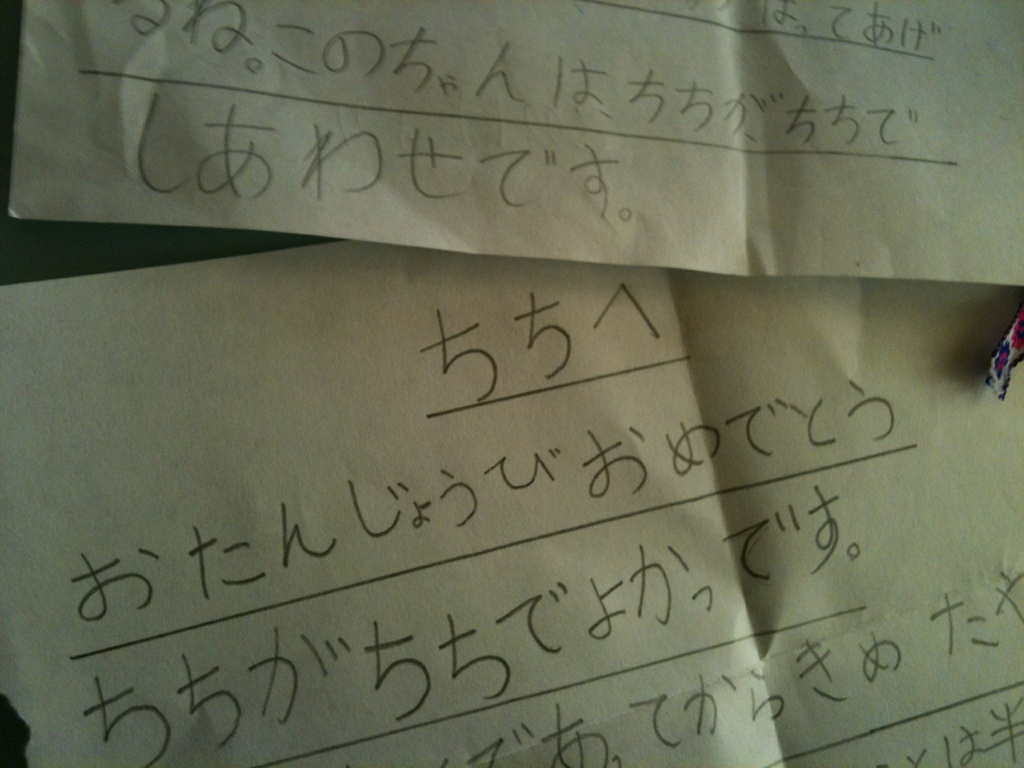 はってあげ
るね。このちゃんは、ちちが、ちちで
しあわせです。
ちちへ
おたんじょうびおめでとう
ちちがちちでよかっです。
であってからきめたや
は半